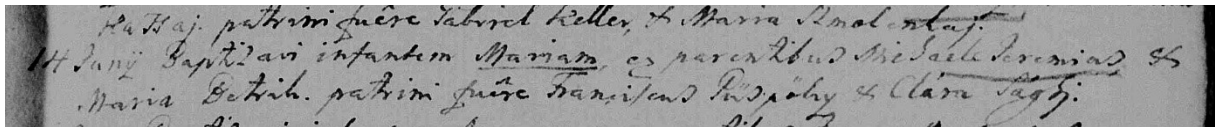 patrini fuêre Gabriel Keller, & Maria Smolenkaj.
14 Junÿ Baptizavi infantem Mariam, ex parentibus Michaele Jeremias &
Maria Detrih. patrini fuêre Franciscus Püspöky & Clára Sághj.